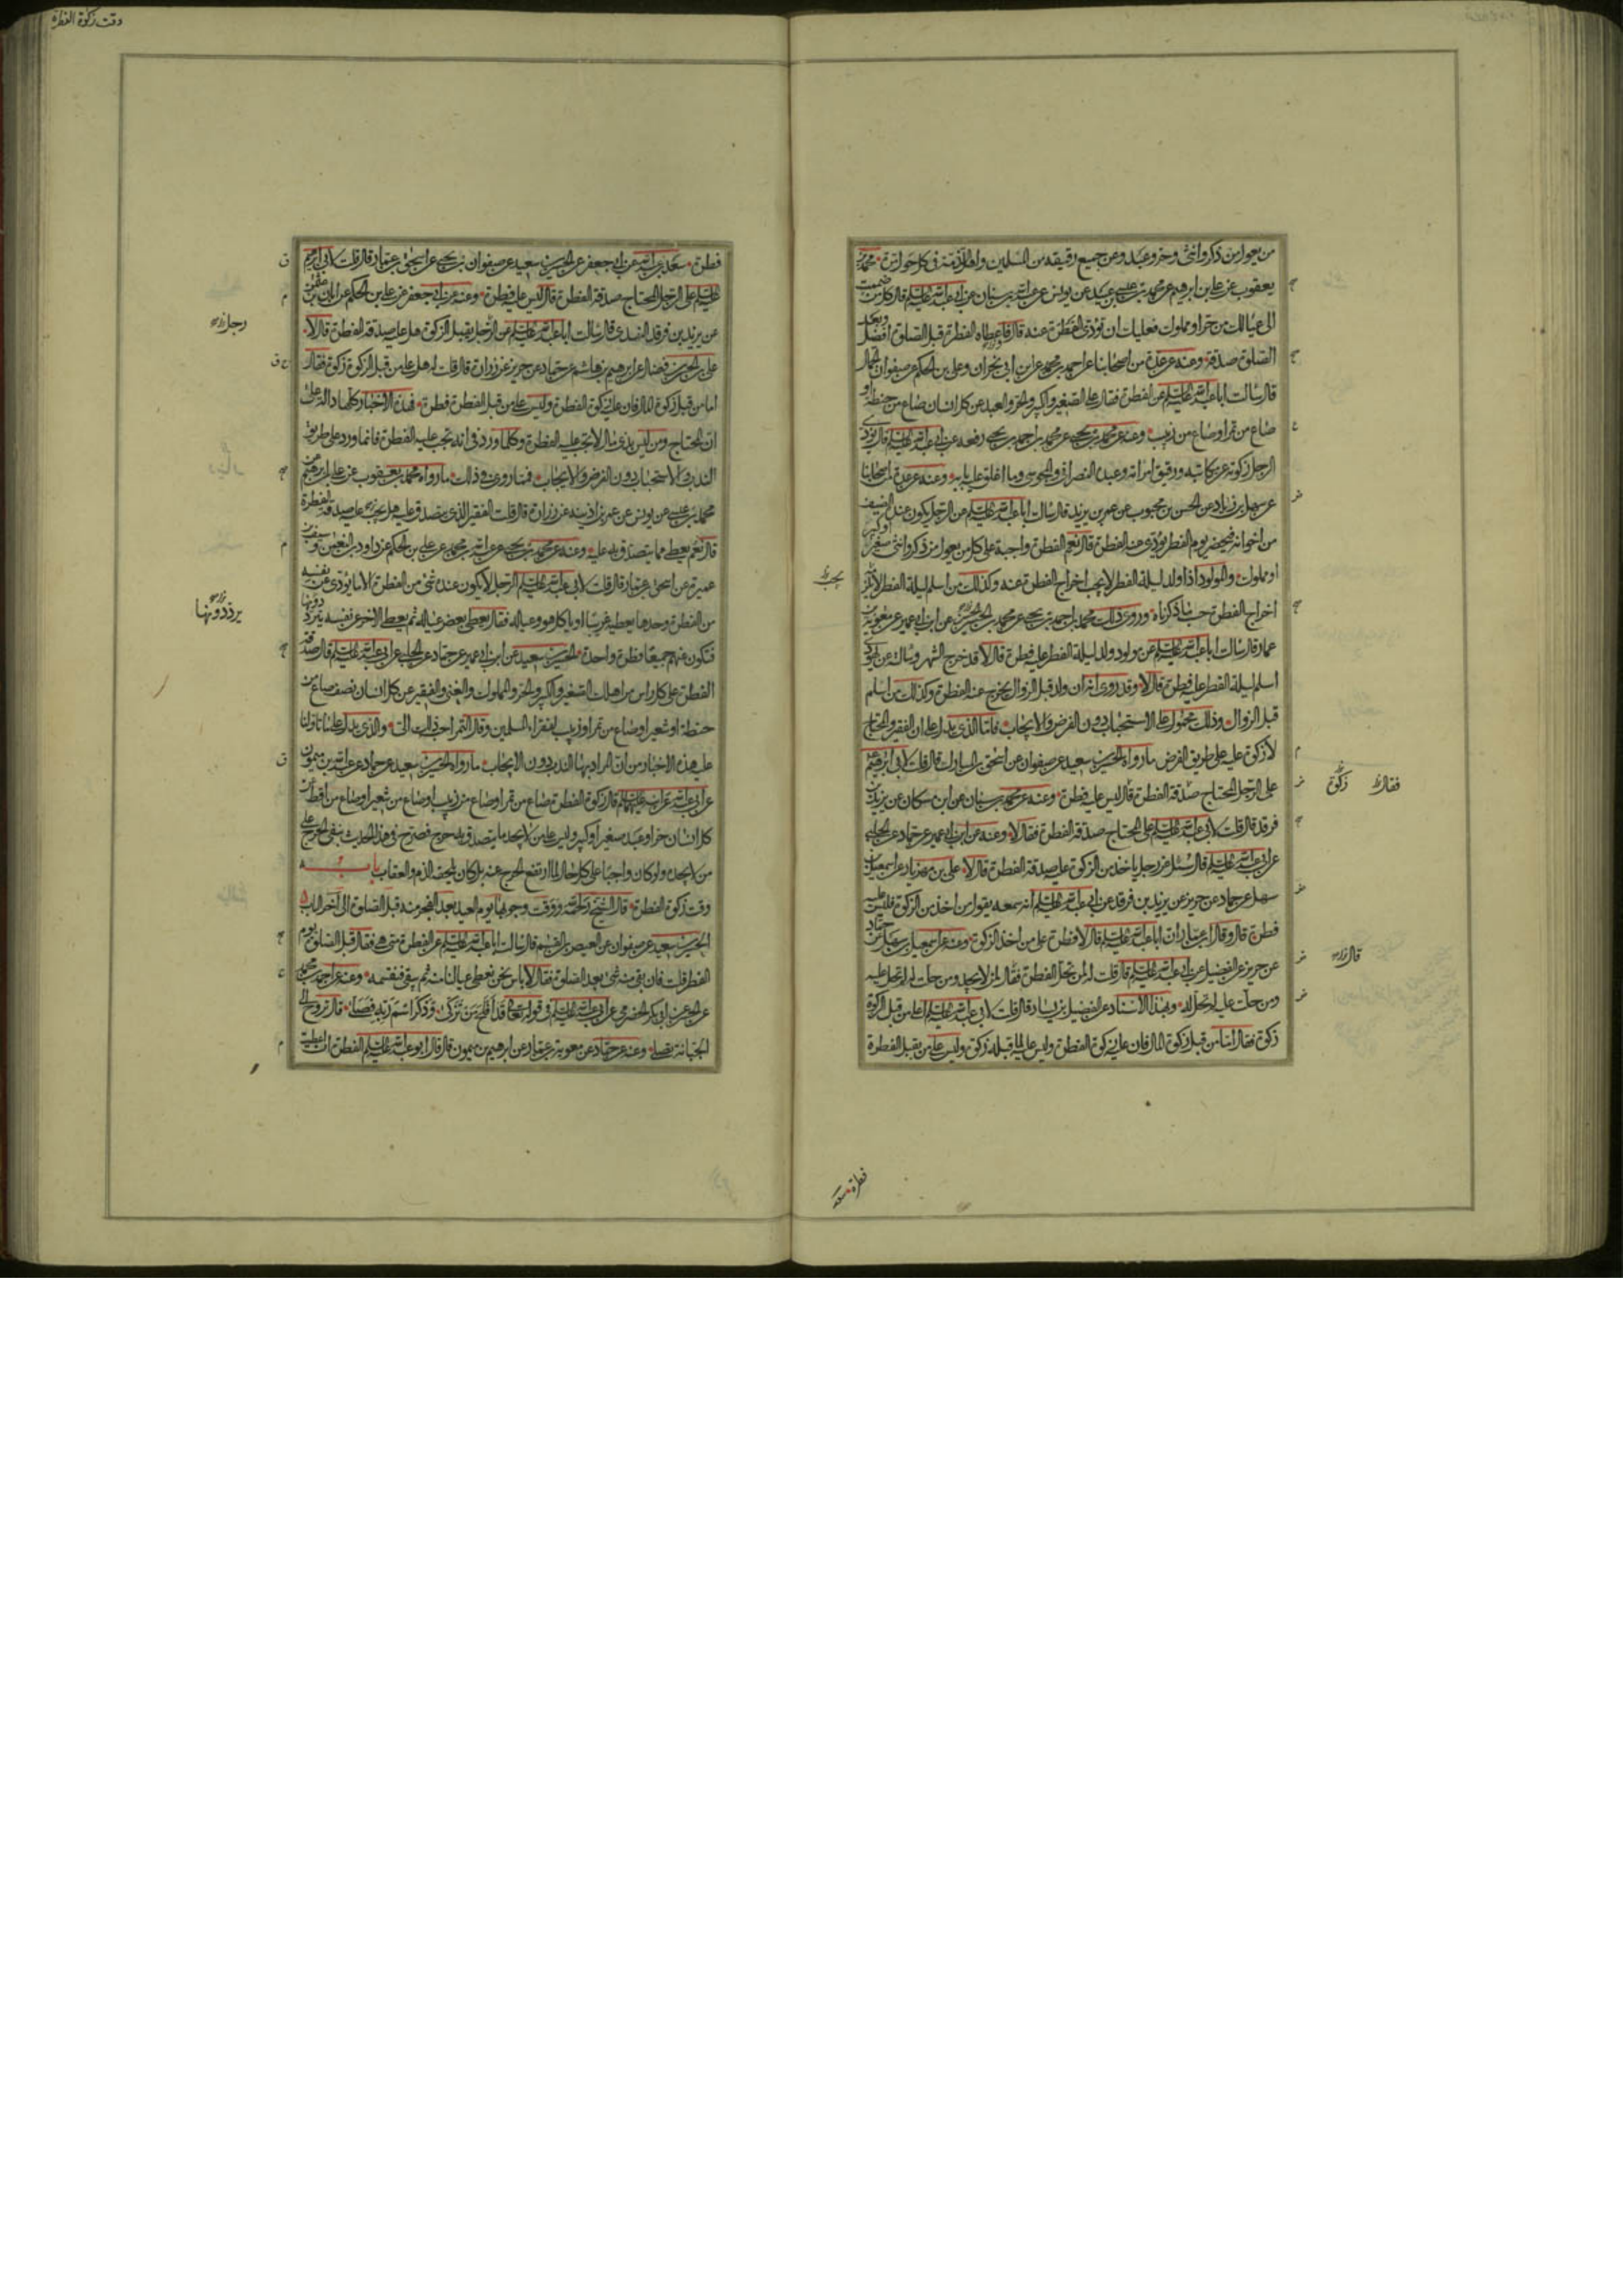 من يعوله من ذكر وانثى وحر وعبد وعن جميع رقيقه من المسلمين واهل الذمة في كل حول مرة محمد بن
يعقوب عن علي بن ابرهيم عن محمد بن عيسى بن عبيد عن يونس عن عبد الله بن سنان عن ابي عبد الله عليه السلام قال كل من ضممت
الى عيالك من حر او مملوك فعليك ان تؤدي الفطرة عنه قال فاعطاء الفطرة قبل الصلوة افضل وبعد
الصلوة صدقة وعنه عن عدة من اصحابنا عن احمد بن محمد عن ابن ابي نجران وعلي بن الحكم عن صفوان الجمال
قال سالت ابا عبد الله عليه السلام عن الفطرة فقال على الصغير والكبير والحر والعبد عن كل انسان صاع من حنطة او
صاع من تمر او صاع من زبيب وعنه عن محمد بن يحيى عن محمد بن احمد بن يحيى رفعه عن ابي عبد الله عليه السلام قال يؤدي
الرجل زكوته عن مكاتبه ورقيق امراته وعبده النصراني والمجوسي وما اغلق عليه بابه وعنه عن عدة من اصحابنا
عن سهل بن زياد عن الحسن بن محبوب عن عمر بن يزيد قال سالت ابا عبد الله عليه السلام عن الرجل يكون عنده الضيف
من اخوانه فيحضر يوم الفطر يؤدي عنه الفطرة قال نعم الفطرة واجبة على كل من يعول من ذكر او انثى صغير او كبير
او مملوك والمولود اذا ولد ليلة الفطر لا يجب اخراج الفطرة عنه وكذلك من اسلم ليلة الفطر لا يلزمه
اخراج الفطرة حسب ما ذكرناه وروى ذلك محمد بن احمد بن يحيى عن محمد بن الحسين عن ابن ابي عمير عن معوية بن
عمار قال سالت ابا عبد الله عليه السلام عن مولود ولد ليلة الفطر عليه فطرة قال لا قد خرج الشهر وسالته عن يهودي
اسلم ليلة الفطر عليه فطرة قال لا وقد روي انه ان ولد قبل الزوال يخرج عنه الفطرة وكذلك من اسلم
قبل الزوال وذلك محمول على الاستحباب دون الفرض والايجاب فاما الذي يدل على ان الفقير والمحتاج
لا زكوة عليه على طريق الفرض ما رواه الحسين بن سعيد عن صفوان عن اسحق بن المبارك قال قلت لابي ابرهيم
على الرجل المحتاج صدقة الفطرة قال ليس عليه فطرة وعنه عن محمد بن سنان عن ابن مسكان عن يزيد بن
فرقد قال قلت لابي عبد الله عليه السلام على المحتاج صدقة الفطرة فقال لا وعنه عن ابن ابي عمير عن حماد عن الحلبي
عن ابي عبد الله عليه السلام قال سئل عن رجل ياخذ من الزكوة عليه صدقة الفطرة قال لا علي بن مهزيار عن اسمعيل بن
سهل عن حماد عن حريز عن يزيد بن فرقد عن ابي عبد الله عليه السلام انه سمعه يقول من اخذ من الزكوة فليس عليه
فطرة قال وقال ابن عمار ان ابا عبد الله عليه السلام قال لا فطرة على من اخذ الزكوة وعنه عن اسمعيل بن سهل عن حماد
عن حريز عن الفضيل عن ابي عبد الله عليه السلام قال قلت له لمن تحل الفطرة فقال لمن لا يجد ومن حلت له لم تحل عليه
ومن حلت عليه لم تحل له وبهذا الاسناد عن الفضيل بن يسار قال قلت لابي عبد الله عليه السلام اعلى من قبل الزكوة
زكوة فقال اما من قبل زكوة المال فان عليه زكوة الفطرة وليس عليه لما قبله زكوة وليس على من يقبل الفطرة
يجب
فقال
زكوة
قال
فطرة سعد
وقت زكوة الفطرة
فطرة سعد بن عبد الله عن ابي جعفر عن الحسين بن سعيد عن صفوان بن يحيى عن اسحق بن عمار قال قلت لابي ابرهيم
عليه السلام على الرجل المحتاج صدقة الفطرة قال ليس عليه فطرة وعنه عن ابي جعفر عن علي بن الحكم عن ابان بن عثمن
عن يزيد بن فرقد النهدي قال سالت ابا عبد الله عليه السلام عن الرجل يقبل الزكوة هل عليه صدقة الفطرة قال لا
علي بن الحسن بن فضال عن ابرهيم بن هاشم عن حماد عن حريز عن زرارة قال قلت له هل على من قبل الزكوة زكوة فقال
اما من قبل زكوة المال فان عليه زكوة الفطرة وليس على من قبل الفطرة فطرة فهذه الاخبار كلها دالة على
ان المحتاج ومن ليس بذي مال لا تجب عليه الفطرة وكلما ورد في انه تجب عليه الفطرة فانما ورد على طريق
الندب والاستحباب دون الفرض والايجاب فمما روي في ذلك ما رواه محمد بن يعقوب عن علي بن ابرهيم عن
محمد بن عيسى عن يونس عن عمر بن اذينه عن زرارة قال قلت الفقير الذي يتصدق عليه هل يجب عليه صدقة الفطرة
قال نعم يعطي مما يتصدق به عليه وعنه عن محمد بن يحيى عن عبد الله بن محمد عن علي بن الحكم عن داود بن النعمن وسيف بن
عميرة عن اسحق بن عمار قال قلت لابي عبد الله عليه السلام الرجل لا يكون عنده شيء من الفطرة الا ما يؤدي عن نفسه
من الفطرة وحدها يعطيه غريبا او ياكل هو وعياله فقال يعطي بعض عياله ثم يعطي الاخر عن نفسه يترددونها
فتكون عنهم جميعا فطرة واحدة الحسين بن سعيد عن ابن ابي عمير عن حماد عن الحلبي عن ابي عبد الله عليه السلام قال صدقة
الفطرة على كل راس من اهلك الصغير والكبير والحر والمملوك والغني والفقير عن كل انسان نصف صاع من
حنطة او شعير او صاع من تمر او زبيب لفقراء المسلمين وقال التمر احب ذلك الي والذي يدل على ما تاولنا
عليه هذه الاخبار من ان المراد بها الندب دون الايجاب ما رواه الحسين بن سعيد عن حماد عن عبد الله بن ميمون
عن ابي عبد الله عن ابيه عليهما السلام قال زكوة الفطرة صاع من تمر او صاع من زبيب او صاع من شعير او صاع من اقط عن
كل انسان حر او عبد صغير او كبير وليس على من لا يجد ما يتصدق به حرج فصرح في هذا الحديث بنفي الحرج على
من لا يجده ولو كان واجبا على كل حال لما ارتفع الحرج عنه بل كان يلحقه الذم والعقاب باب
وقت زكوة الفطرة قال الشيخ رحمه الله ووقت وجوبها يوم العيد بعد الفجر منه قبل الصلوة الى آخر الباب
الحسين بن سعيد عن صفوان عن العيص بن القسم قال سالت ابا عبد الله عليه السلام عن الفطرة متى هي فقال قبل الصلوة يوم
الفطر قلت فان بقي منه شيء بعد الصلوة فقال لا باس نحن نعطي عيالنا منه ثم يبقى فنقسمه وعنه عن احمد بن محمد
عن ابي بكر الحضرمي عن ابي عبد الله عليه السلام في قوله تعالى قد افلح من تزكى وذكر اسم ربه فصلى قال تروح الى
الجبانة فتصلي وعنه عن حماد عن معوية بن عمار عن ابرهيم بن ميمون قال قال ابو عبد الله عليه السلام الفطرة ان اعطيت
رجل
يرددونها